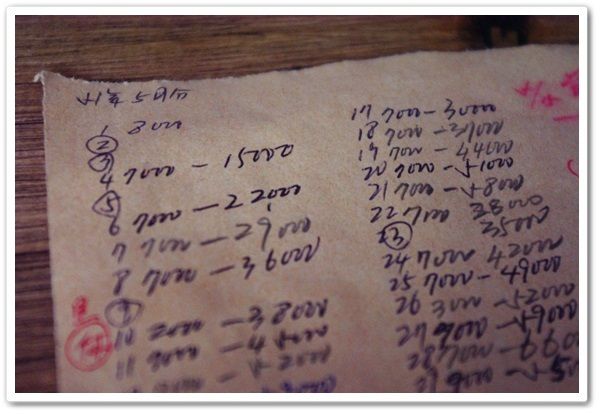 年5月分
1 8000
②
③
4 7000 — 15000
⑤
6 7000 — 22000
7 7000 — 29000
8 7000 — 36000
⑨
10 2000 — 38000
11 7000 — 45000
52000
17 7000 — 30000
18 7000 — 37000
19 7000 — 44000
20 7000 — 51000
21 7000 — 58000
22 7000 28000
㉓ 35000
24 7000 42000
25 7000 — 49000
26 3000 — 52000
27 7000 — 59000
28 7000 — 6600